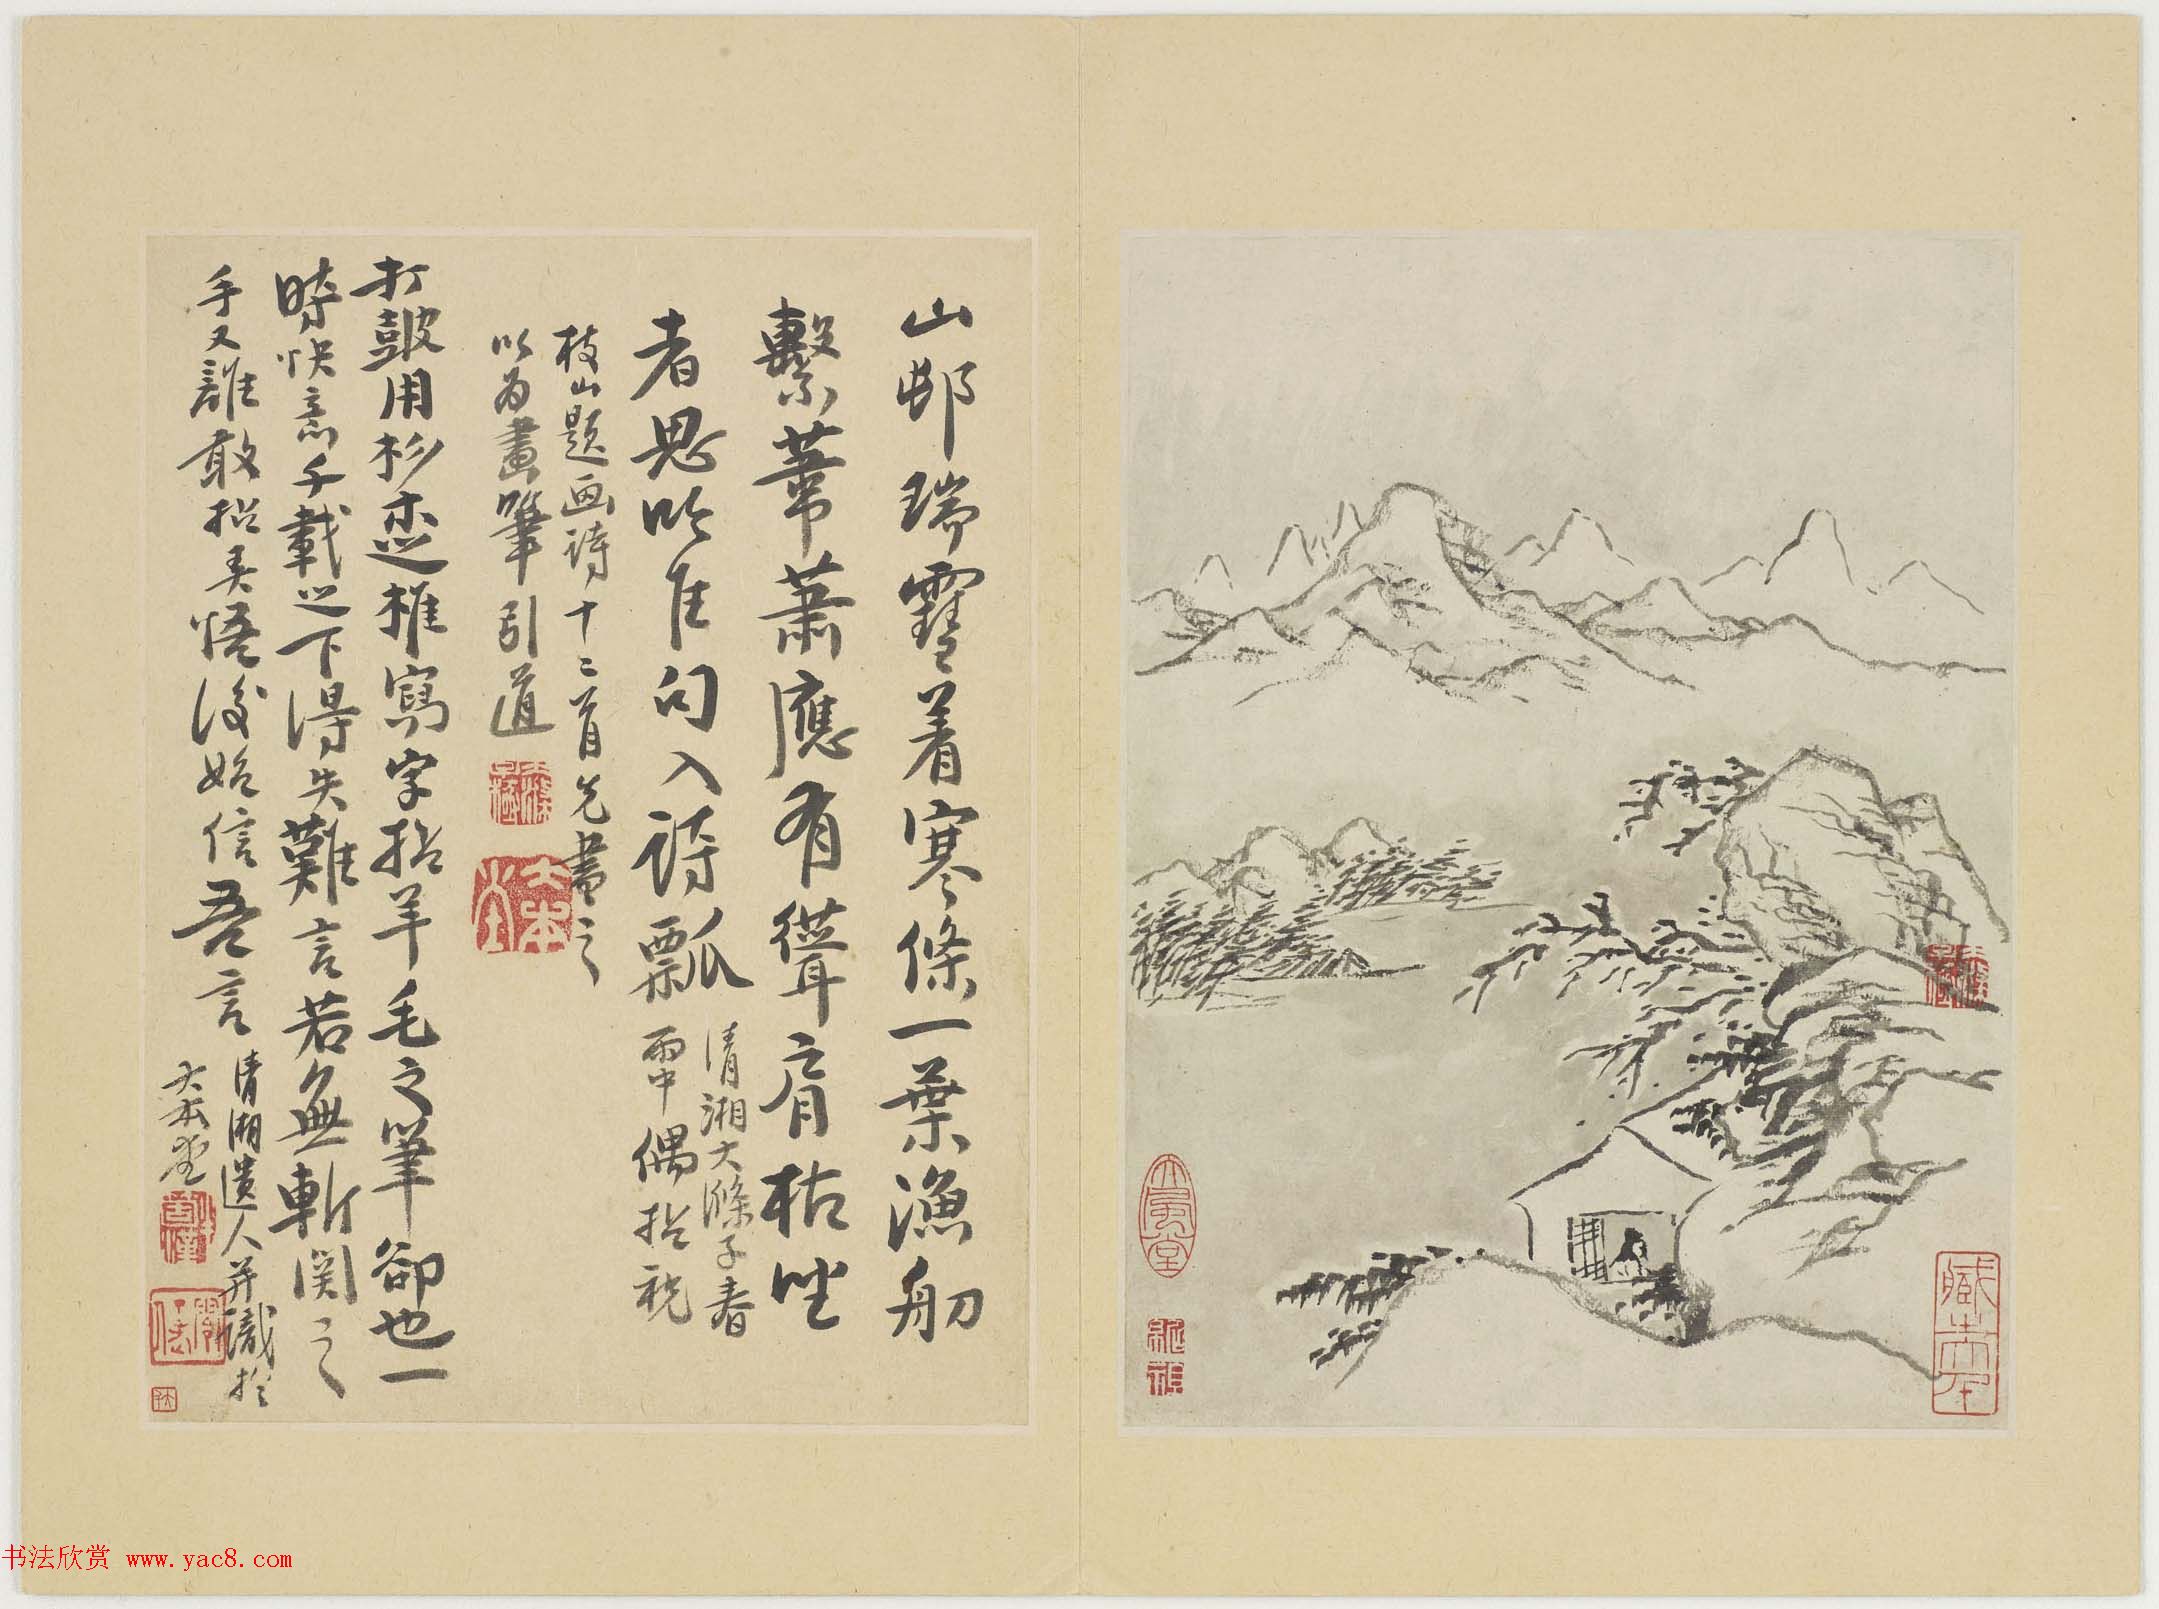 山邨瑞雪着寒條一葉漁舠
繫葦蕭應有聳肩枯坐
者思吟佳句入詩瓢
清湘大滌子春
雨中偶拈視
枝山題画詩十二首先書之
以為畫筆引道
打鼓用杉木椎寫字拈羊毛之筆卻也一
時快意千載之下得失難言若無斬関之
手又誰敢拈弄悟後始信吾言
清湘遺人并識於
大本堂
大風堂
书法欣赏 www.yac8.com